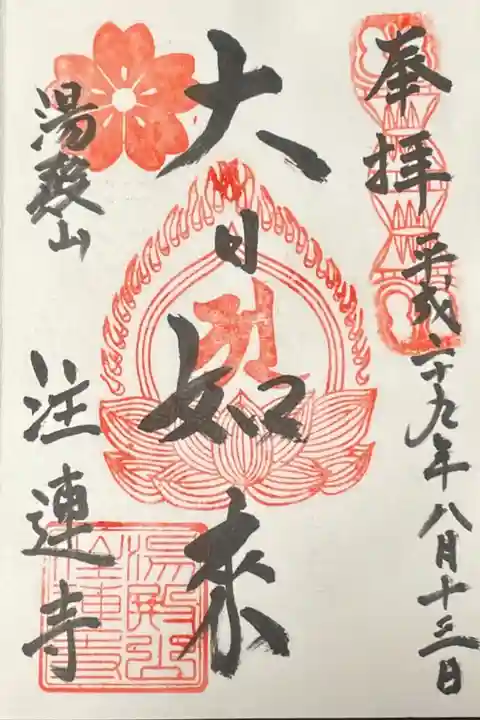 奉拝
平成二十九年八月十三日
大日如来
湯殿山
注連寺
湯殿山
注連寺